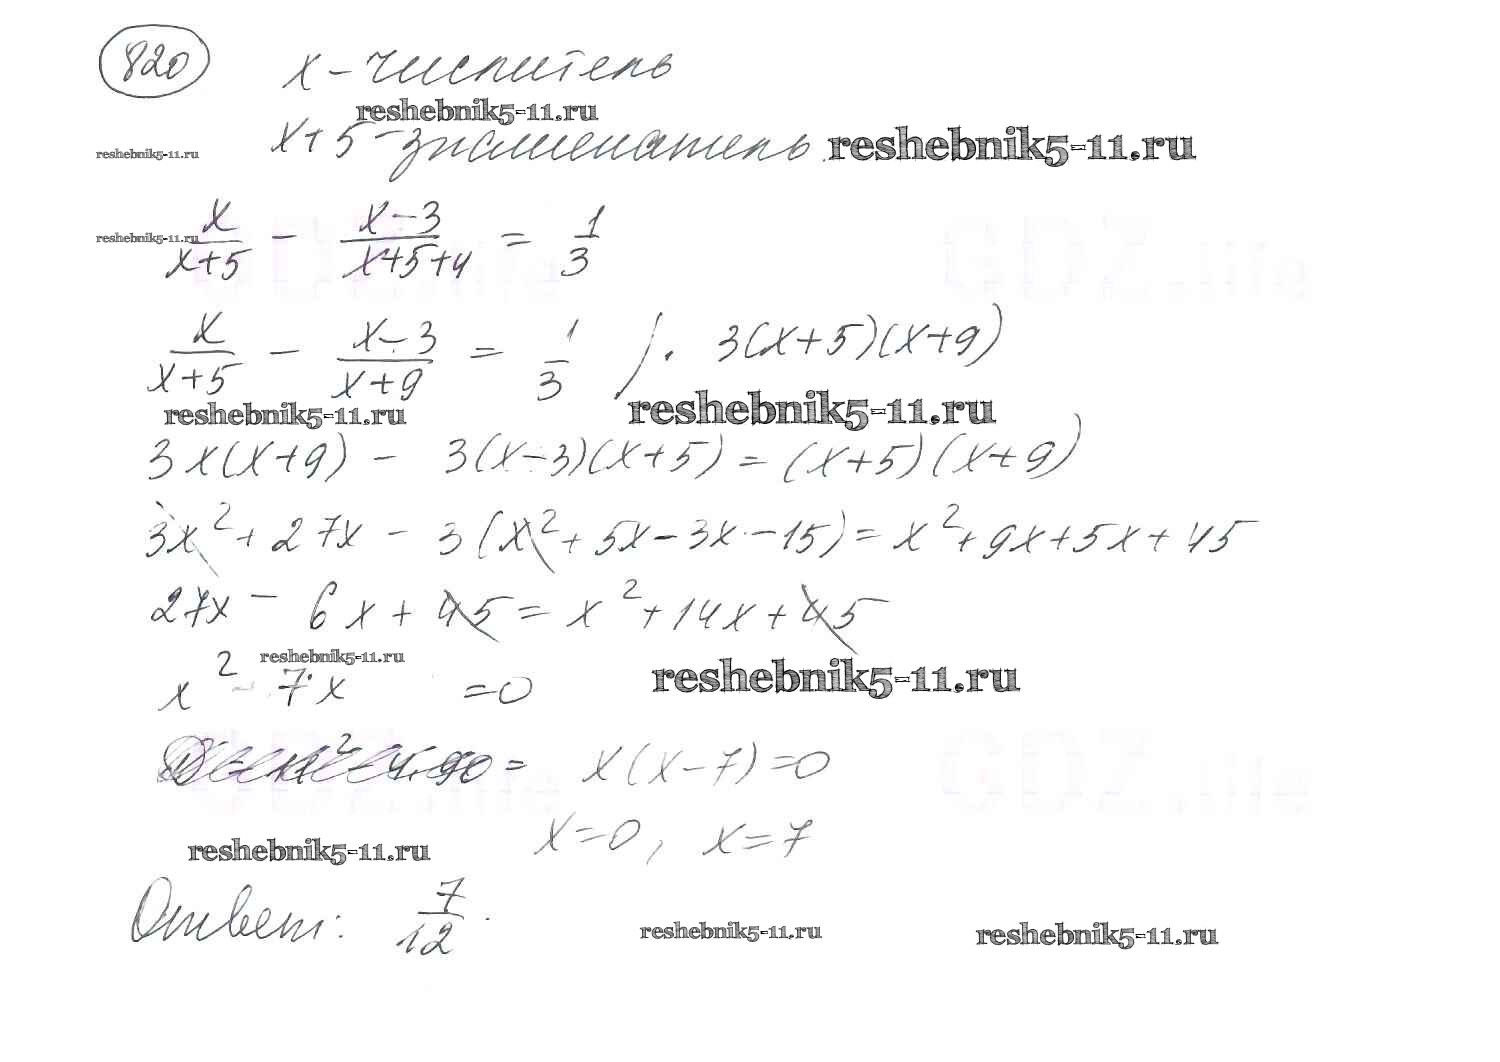 820
x - числитель
reshebnik5-11.ru
x+5 - знаменатель. reshebnik5-11.ru
reshebnik5-11.ru
x/(x+5) - (x-3)/(x+5+4) = 1/3
reshebnik5-11.ru
GDZ.life GDZ.life
x/(x+5) - (x-3)/(x+9) = 1/3 /· 3(x+5)(x+9)
reshebnik5-11.ru reshebnik5-11.ru
3x(x+9) - 3(x-3)(x+5) = (x+5)(x+9)
3x²+27x - 3(x²+5x-3x-15) = x²+9x+5x+45
27x - 6x+45 = x²+14x+45
reshebnik5-11.ru
x² - 7x =0 reshebnik5-11.ru
x(x-7)=0
GDZ.life GDZ.life
x=0, x=7
reshebnik5-11.ru
Ответ: 7/12.
reshebnik5-11.ru reshebnik5-11.ru